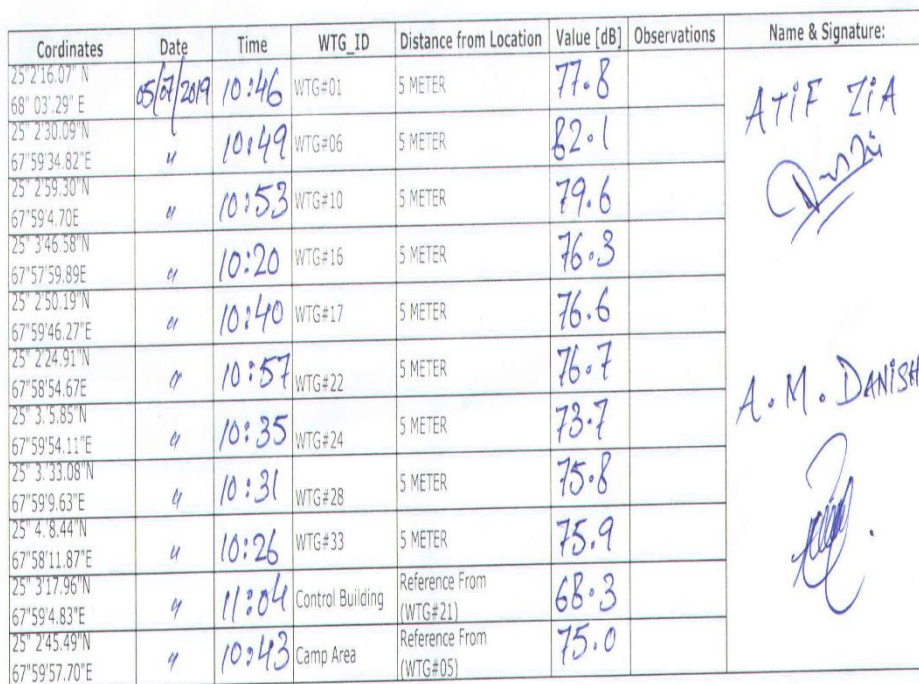 Cordinates Date Time WTG_ID Distance from Location Value [dB] Observations Name & Signature:
25°2'16.07" N
68° 03'.29" E 05/07/2019 10:46 WTG#01 5 METER 77.8
ATIF ZIA
25° 2'30.09"N
67°59'34.82"E " 10:49 WTG#06 5 METER 82.1
25° 2'59.30"N
67°59'4.70E " 10:53 WTG#10 5 METER 79.6
25° 3'46.58"N
67°57'59.89E " 10:20 WTG#16 5 METER 76.3
25° 2'50.19"N
67°59'46.27"E " 10:40 WTG#17 5 METER 76.6
25° 2'24.91"N
67°58'54.67E " 10:57 WTG#22 5 METER 76.7
A.M. DANISH
25° 3.'5.85"N
67°59'54.11"E " 10:35 WTG#24 5 METER 73.7
25° 3.'33.08"N
67°59'9.63"E " 10:31 WTG#28 5 METER 75.8
25° 4.'8.44"N
67°58'11.87"E " 10:26 WTG#33 5 METER 75.9
25° 3'17.96"N
67°59'4.83"E " 11:04 Control Building Reference From 68.3
(WTG#21)
25° 2'45.49"N
67°59'57.70"E " 10:43 Camp Area Reference From 75.0
(WTG#05)